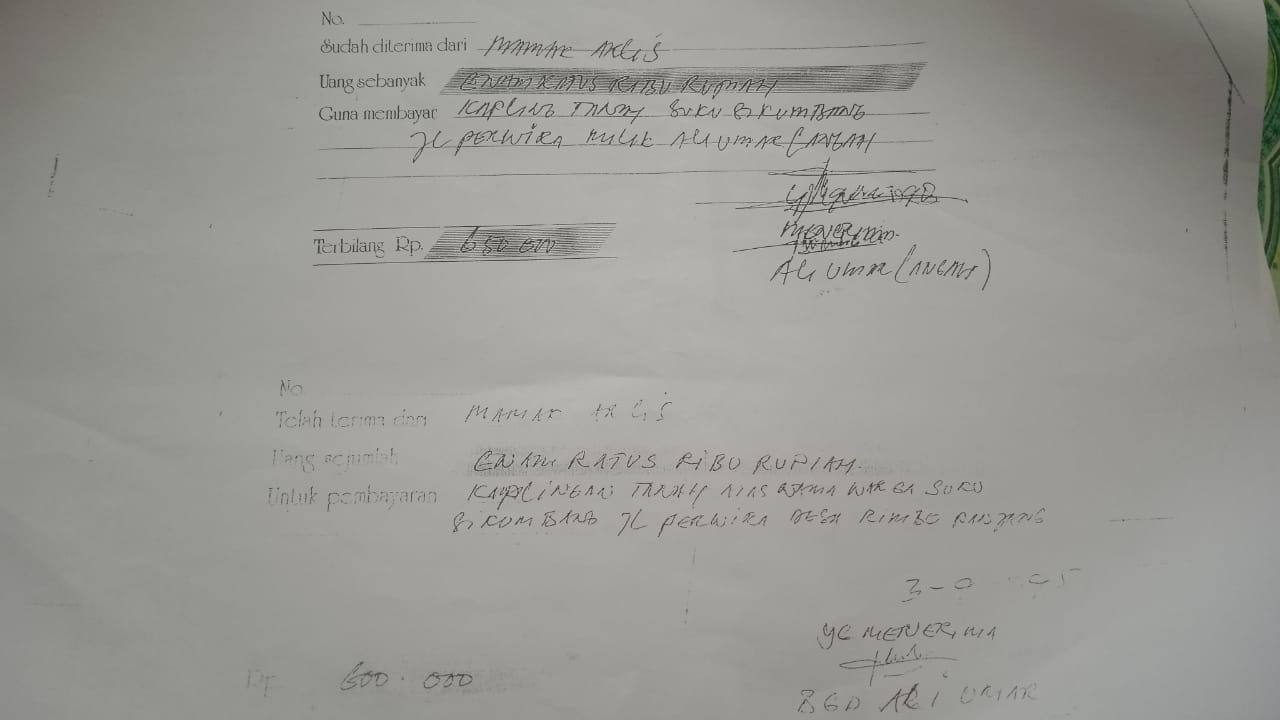 No.
Sudah diterima dari MAMAK AKLIS
Uang sebanyak ENAM RATUS RIBU RUPIAH
Guna membayar KAPLING TANAH SUKU SIKUMBANG
JL PERWIRA MILIK ALI UMAR (ANGAH
Terbilang Rp. 650 000
MENERIMA
ALI UMAR (ANGAH)
No.
Telah terima dari MAMAK AKLIS
Uang sejumlah ENAM RATUS RIBU RUPIAH
Untuk pembayaran KAPLINGAN TANAH ATAS NAMA WARGA SUKU
SIKUMBANG JL PERWIRA DESA RIMBO PANJANG
YG MENERIMA
Rp 600.000
BGD ALI UMAR